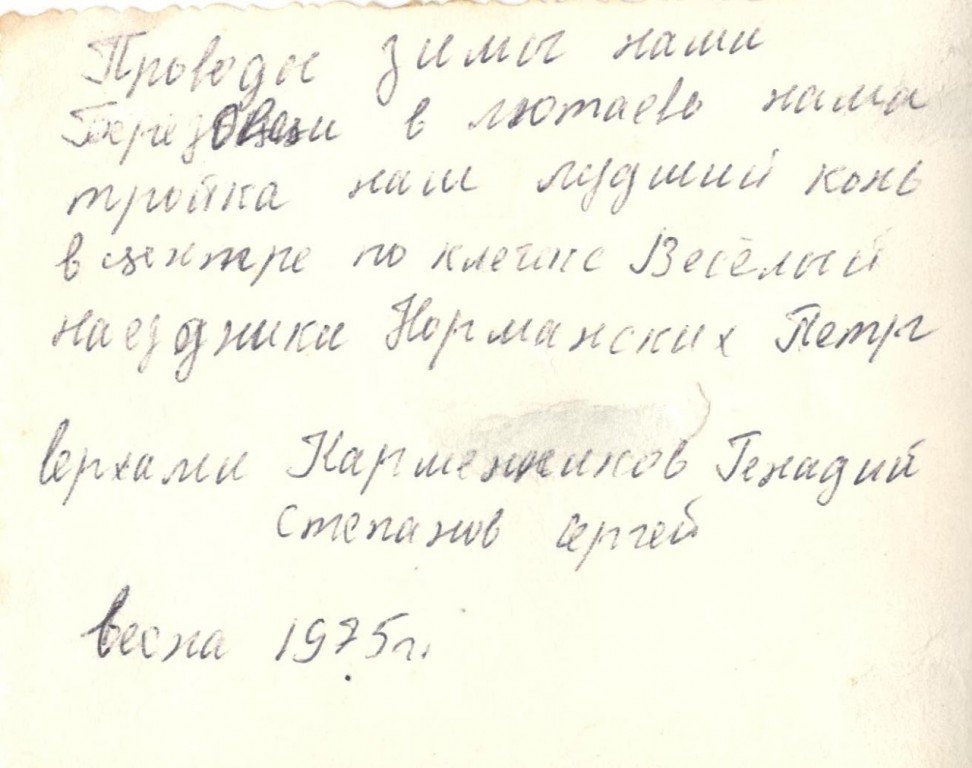 Проводы зимы нами
в лютаево нама
тройка наш лудший конь
в центре по кличке Весёлый
наездники Норманских Петр
верхами Карменников Генадий
Степанов Сергей
весна 1975 г.